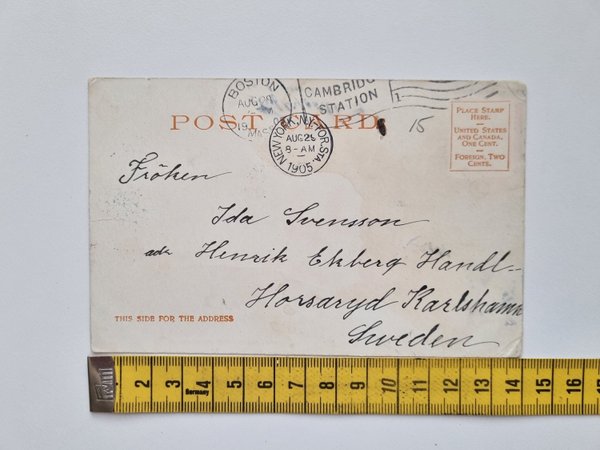 BOSTON
AUG 28
MASS
CAMBRIDG
STATION
1
POST CARD
NEW YORK, N.Y. FOR. STA
AUG 29
8-AM
1905
15
PLACE STAMP
HERE.
UNITED STATES
AND CANADA,
ONE CENT.
FOREIGN, TWO
CENTS.
Fröken
Ida Svensson
adr Henrik Ekberg Handl-
Horsaryd Karlshamn
Sweden
THIS SIDE FOR THE ADDRESS
1 2 3 4 5 6 7 8 9 10 11 12 13 14 15 16
Germany